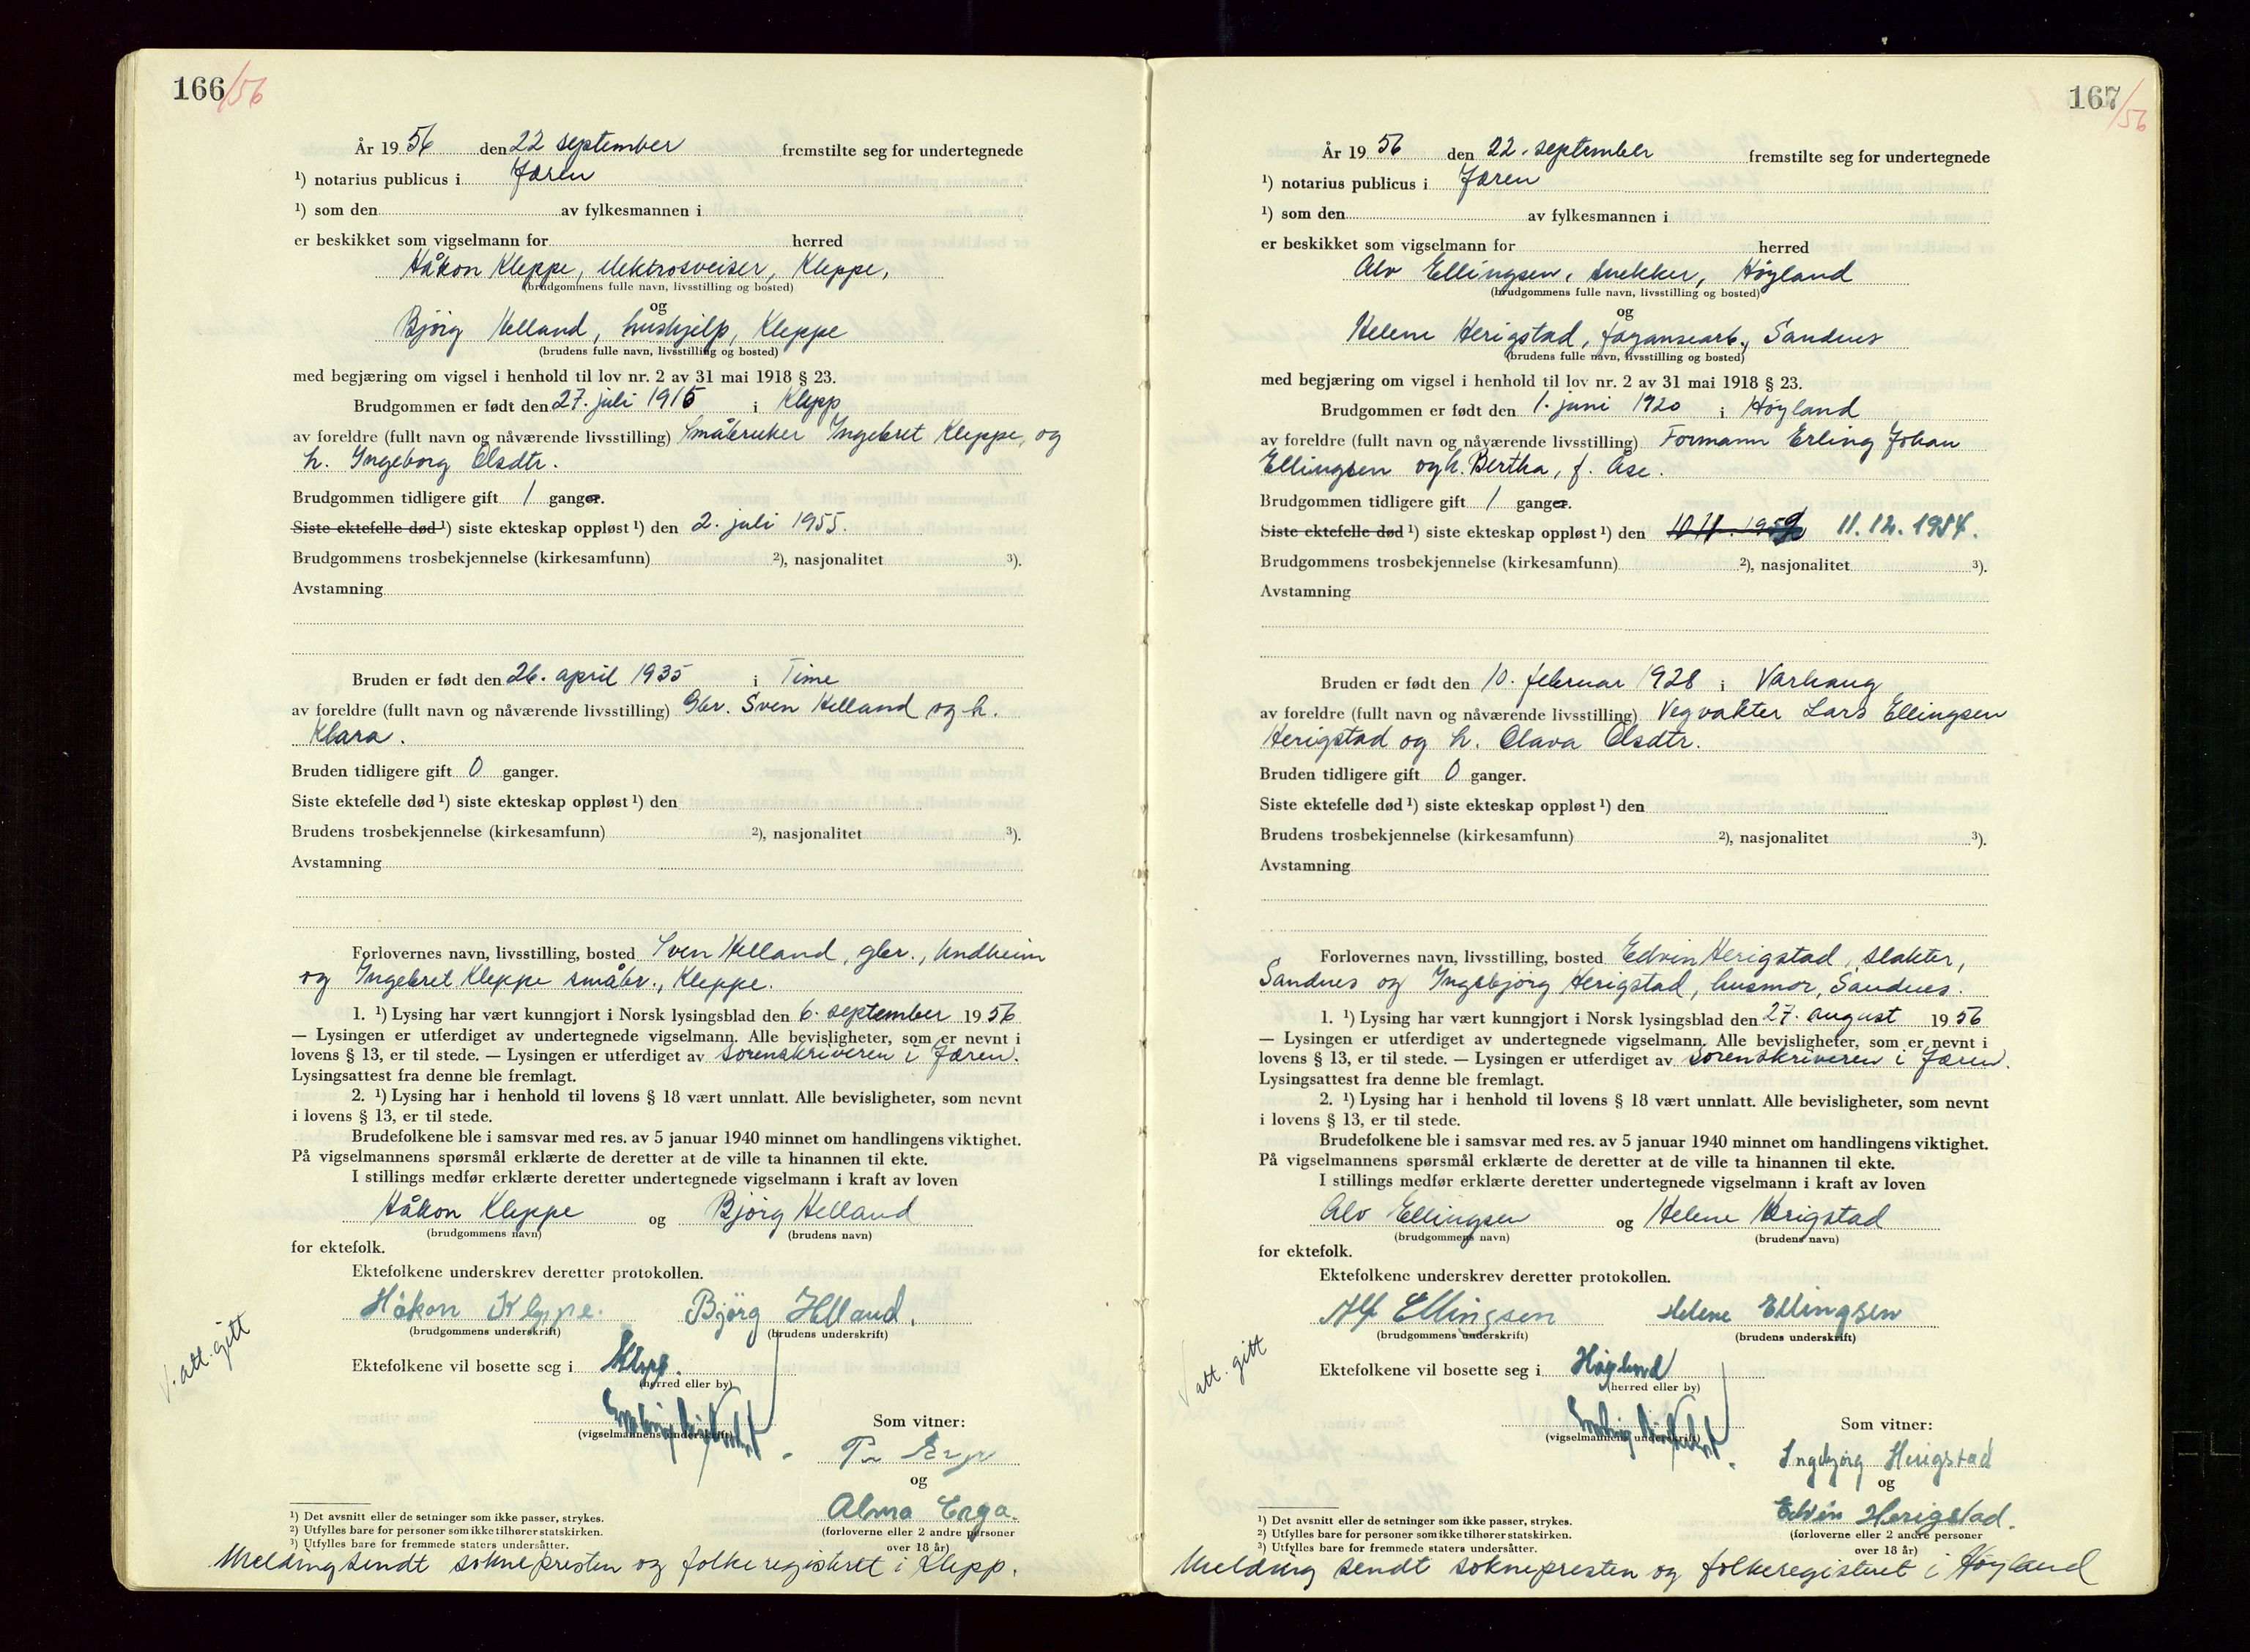 166/56
År 1956 den 22 september fremstilte seg for undertegnede
¹) notarius publicus i Jæren
¹) som den av fylkesmannen i
er beskikket som vigselmann for herred
Håkon Kleppe, elektrosveiser, Kleppe,
(brudgommens fulle navn, livsstilling og bosted)
og
Bjørg Helland, hushjelp, Kleppe
(brudens fulle navn, livsstilling og bosted)
med begjæring om vigsel i henhold til lov nr. 2 av 31 mai 1918 § 23.
Brudgommen er født den 27. juli 1915 i Klepp
av foreldre (fullt navn og nåværende livsstilling) Småbruker Ingebret Kleppe, og
h. Ingeborg Olsdtr.
Brudgommen tidligere gift 1 ganger.
Siste ektefelle død ¹) siste ekteskap oppløst ¹) den 2. juli 1955.
Brudgommens trosbekjennelse (kirkesamfunn) ²), nasjonalitet ³).
Avstamning
Bruden er født den 26. april 1935 i Time
av foreldre (fullt navn og nåværende livsstilling) Gbr. Sven Helland og h.
Klara.
Bruden tidligere gift 0 ganger.
Siste ektefelle død ¹) siste ekteskap oppløst ¹) den
Brudens trosbekjennelse (kirkesamfunn) ²), nasjonalitet ³).
Avstamning
Forlovernes navn, livsstilling, bosted Sven Helland, gbr., Undheim
og Ingebret Kleppe småbr., Kleppe.
1. ¹) Lysing har vært kunngjort i Norsk lysingsblad den 6. september 1956
— Lysingen er utferdiget av undertegnede vigselmann. Alle bevisligheter, som er nevnt i
lovens § 13, er til stede. — Lysingen er utferdiget av sorenskriveren i Jæren.
Lysingsattest fra denne ble fremlagt.
2. ¹) Lysing har i henhold til lovens § 18 vært unnlatt. Alle bevisligheter, som nevnt
i lovens § 13, er til stede.
Brudefolkene ble i samsvar med res. av 5 januar 1940 minnet om handlingens viktighet.
På vigselmannens spørsmål erklærte de deretter at de ville ta hinannen til ekte.
I stillings medfør erklærte deretter undertegnede vigselmann i kraft av loven
Håkon Kleppe og Bjørg Helland
(brudgommens navn) (brudens navn)
for ektefolk.
Ektefolkene underskrev deretter protokollen.
Håkon Kleppe. Bjørg Helland.
(brudgommens underskrift) (brudens underskrift)
v. att. gitt
Ektefolkene vil bosette seg i Klepp.
(herred eller by)
(vigselmannens underskrift)
Som vitner:
og
Alma Erga.
(forloverne eller 2 andre personer
over 18 år)
¹) Det avsnitt eller de setninger som ikke passer, strykes.
²) Utfylles bare for personer som ikke tilhører statskirken.
³) Utfylles bare for fremmede staters undersåtter.
Melding sendt soknepresten og folkeregisteret i Klepp.
167/56
År 1956 den 22. september fremstilte seg for undertegnede
¹) notarius publicus i Jæren
¹) som den av fylkesmannen i
er beskikket som vigselmann for herred
Alv Ellingsen, snekker, Høyland
(brudgommens fulle navn, livsstilling og bosted)
og
Helene Herigstad, fayansearb., Sandnes
(brudens fulle navn, livsstilling og bosted)
med begjæring om vigsel i henhold til lov nr. 2 av 31 mai 1918 § 23.
Brudgommen er født den 1. juni 1920 i Høyland
av foreldre (fullt navn og nåværende livsstilling) Formann Erling Johan
Ellingsen og h. Bertha, f. Åse.
Brudgommen tidligere gift 1 ganger.
Siste ektefelle død ¹) siste ekteskap oppløst ¹) den 11.12.1954.
Brudgommens trosbekjennelse (kirkesamfunn) ²), nasjonalitet ³).
Avstamning
Bruden er født den 10. februar 1928 i Varhaug
av foreldre (fullt navn og nåværende livsstilling) Vegvakter Lars Ellingsen
Herigstad og h. Olava Olsdtr.
Bruden tidligere gift 0 ganger.
Siste ektefelle død ¹) siste ekteskap oppløst ¹) den
Brudens trosbekjennelse (kirkesamfunn) ²), nasjonalitet ³).
Avstamning
Forlovernes navn, livsstilling, bosted Edvin Herigstad, slakter,
Sandnes og Ingebjørg Herigstad, husmor, Sandnes.
1. ¹) Lysing har vært kunngjort i Norsk lysingsblad den 27. august 1956
— Lysingen er utferdiget av undertegnede vigselmann. Alle bevisligheter, som er nevnt i
lovens § 13, er til stede. — Lysingen er utferdiget av sorenskriveren i Jæren.
Lysingsattest fra denne ble fremlagt.
2. ¹) Lysing har i henhold til lovens § 18 vært unnlatt. Alle bevisligheter, som nevnt
i lovens § 13, er til stede.
Brudefolkene ble i samsvar med res. av 5 januar 1940 minnet om handlingens viktighet.
På vigselmannens spørsmål erklærte de deretter at de ville ta hinannen til ekte.
I stillings medfør erklærte deretter undertegnede vigselmann i kraft av loven
Alv Ellingsen og Helene Herigstad
(brudgommens navn) (brudens navn)
for ektefolk.
Ektefolkene underskrev deretter protokollen.
Alf Ellingsen Helene Ellingsen
(brudgommens underskrift) (brudens underskrift)
v att. gitt
Ektefolkene vil bosette seg i Høyland
(herred eller by)
(vigselmannens underskrift)
Som vitner:
Ingebjørg Herigstad
og
Edvin Herigstad.
(forloverne eller 2 andre personer
over 18 år)
¹) Det avsnitt eller de setninger som ikke passer, strykes.
²) Utfylles bare for personer som ikke tilhører statskirken.
³) Utfylles bare for fremmede staters undersåtter.
Melding sendt soknepresten og folkeregisteret i Høyland